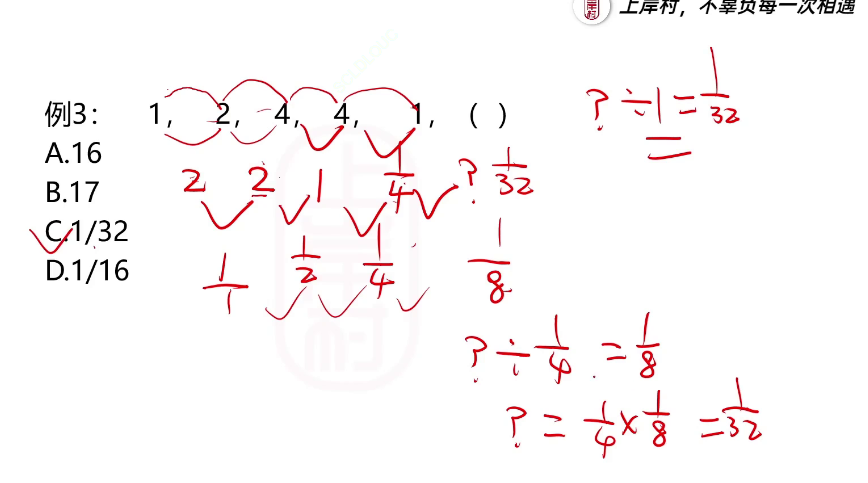 上岸村，不辜负每一次相遇
例3： 1， 2， 4， 4， 1，（ ）
? ÷ 1 = 1/32
A.16
B.17
C.1/32
D.1/16
2 2 1 1/4 ? 1/32
1/1 1/2 1/4 1/8
? ÷ 1/4 = 1/8
? = 1/4 × 1/8 = 1/32
上岸村